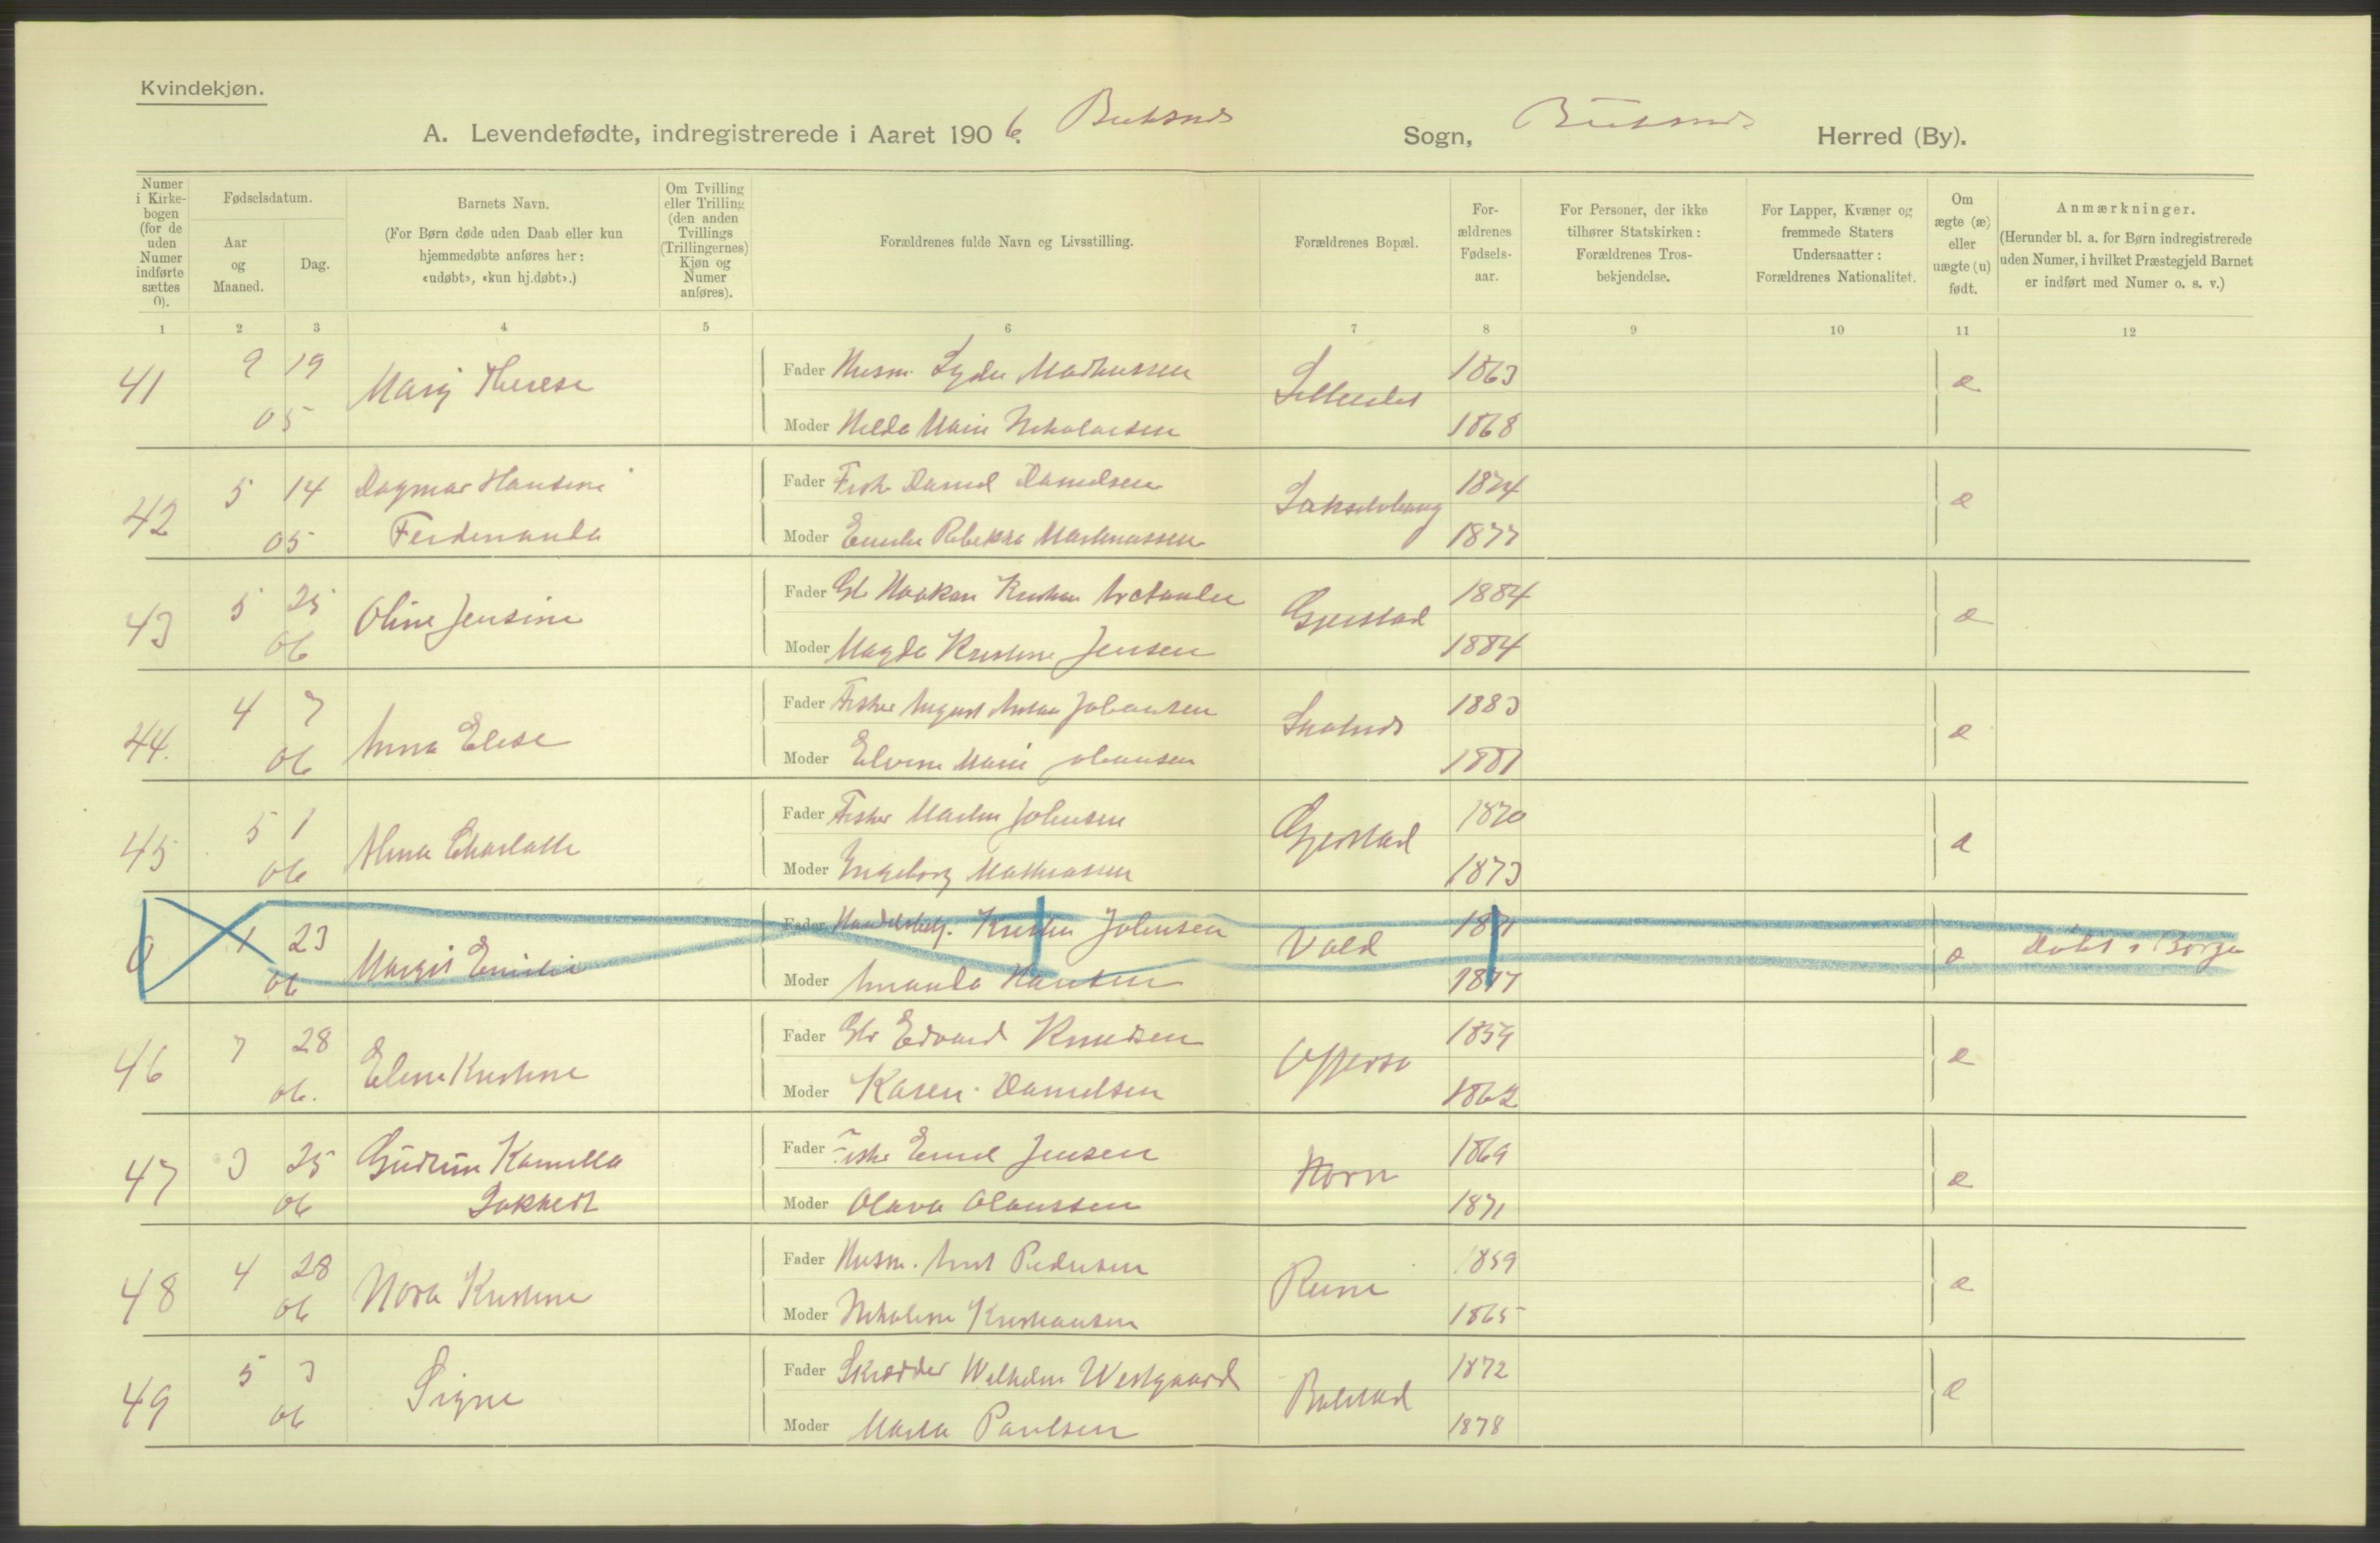 Kvindekjøn.
A. Levendefødte, indregistrerede i Aaret 1906. Buksnes Sogn, Buksnes Herred (By).
Numer i Kirkebogen (for de uden Numer indførte sættes 0).
Fødselsdatum.
Aar og Maaned.
Dag.
Barnets Navn.
(For Børn døde uden Daab eller kun hjemmedøbte anføres her: «udøbt», «kun hj.døbt».)
Om Tvilling eller Trilling (den anden Tvillings (Trillingernes) Kjøn og Numer anføres).
Forældrenes fulde Navn og Livsstilling.
Forældrenes Bopæl.
Forældrenes Fødselsaar.
For Personer, der ikke tilhører Statskirken: Forældrenes Trosbekjendelse.
For Lapper, Kvæner og fremmede Staters Undersaatter: Forældrenes Nationalitet.
Om ægte (æ) eller uægte (u) født.
Anmærkninger.
(Herunder bl. a. for Børn indregistrerede uden Numer, i hvilket Præstegjeld Barnet er indført med Numer o. s. v.)
1 2 3 4 5 6 7 8 9 10 11 12
41 9 19 Fader Husm. 1863
05 Therese æ
Moder Hilda Marie Nikolaisen 1868
42 5 14 Dagmar Hansine Fader Fisk. Daniel Danielsen 1874 æ
05 Ferdinanda Moder Rebekka 1877
43 5 25 Oline Jensine Fader Haakon Kristian Gjerstad 1884 æ
06 Moder Magda Kristine Jensen 1884
44. 4 7 Anna Elise Fader Fisker August Anton Johansen 1883 æ
06 Moder Elvine Marie Johansen 1881
45 5 1 Alma Charlotte Fader Fisker Martin Johnsen Gjerstad 1870 æ
06 Moder Ingeborg Mathiassen 1873
0 1 23 Margit Emilie Fader Johnsen Vold æ Døbt i Borge
06 Moder Amanda Hansen 1877
46 7 28 Eline Kristine Fader Edvard Knudsen 1859 æ
06. Moder Karen Danielsen 1862
47 3 25 Gudrun Kamilla Fader Fisker Emil Jensen Horn 1869 æ
06 Moder Olava Olaussen 1871
48 4 28 Nora Kristine Fader Husm. Arnt Pedersen Reine 1859 æ
06 Moder Nikoline Kristiansen 1865
49 5 3 Signe Fader Skrædder Wilhelm Westgaard Bolstad 1872 æ
06 Moder Marta Paulsen 1878